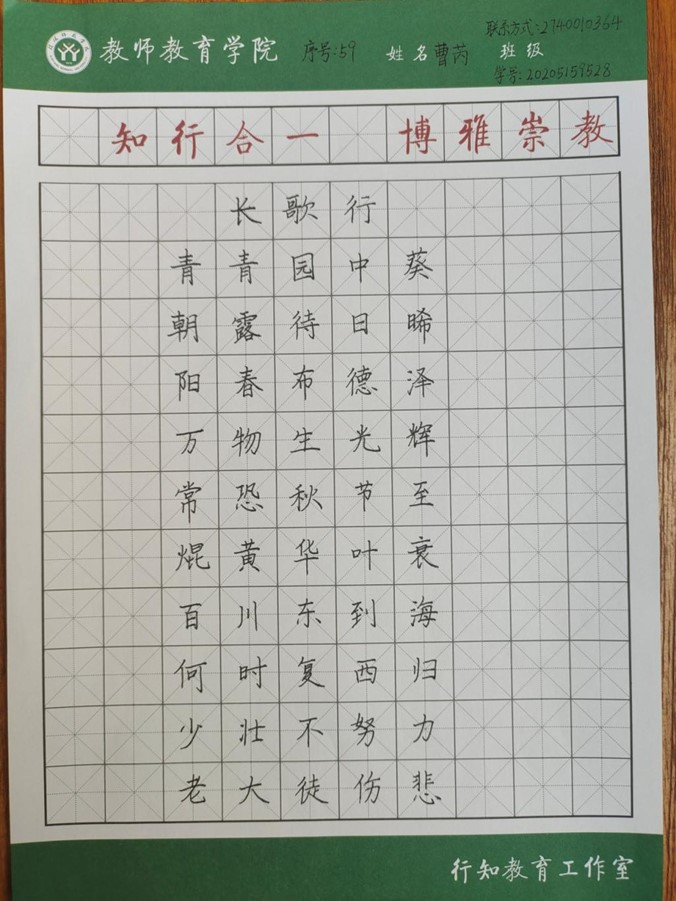 教师教育学院 序号:59 姓名 曹芮 班级
联系方式:2740010364
学号:20205159528
知行合一 博雅崇教
长歌行
青青园中葵
朝露待日晞
阳春布德泽
万物生光辉
常恐秋节至
焜黄华叶衰
百川东到海
何时复西归
少壮不努力
老大徒伤悲
行知教育工作室